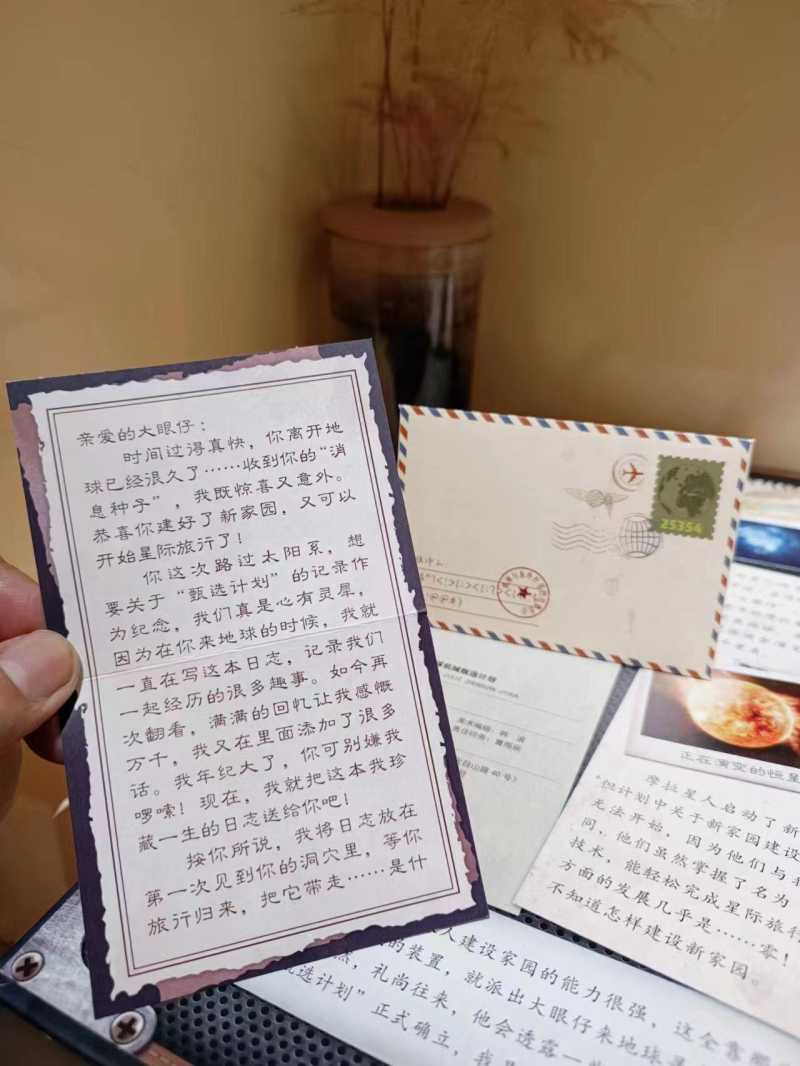 亲爱的大眼仔：
时间过得真快，你离开地
球已经很久了……收到你的“消
息种子”，我既惊喜又意外。
恭喜你建好了新家园，又可以
开始星际旅行了！
你这次路过太阳系，想
要关于“甄选计划”的记录作
为纪念，我们真是心有灵犀，
因为在你来地球的时候，我就
一直在写这本日志，记录我们
一起经历的很多趣事。如今再
次翻看，满满的回忆让我感慨
万千，我又在里面添加了很多
话。我年纪大了，你可别嫌我
啰嗦！现在，我就把这本我珍
藏一生的日志送给你吧！
按你所说，我将日志放在
第一次见到你的洞穴里，等你
旅行归来，把它带走……是什
25354
机械甄选计划
40号
正在演变的恒星
摩拉星人启动了新
但计划中关于新家园建设
无法开始，因为他们与我
同，他们虽然掌握了名为
技术，能轻松完成星际旅行
方面的发展几乎是……零！
不知道怎样建设新家园。
人建设家园的能力很强，这全靠
的装置，就派出大眼仔来地球
然，礼尚往来，他会透露一些
选计划”正式确立，我